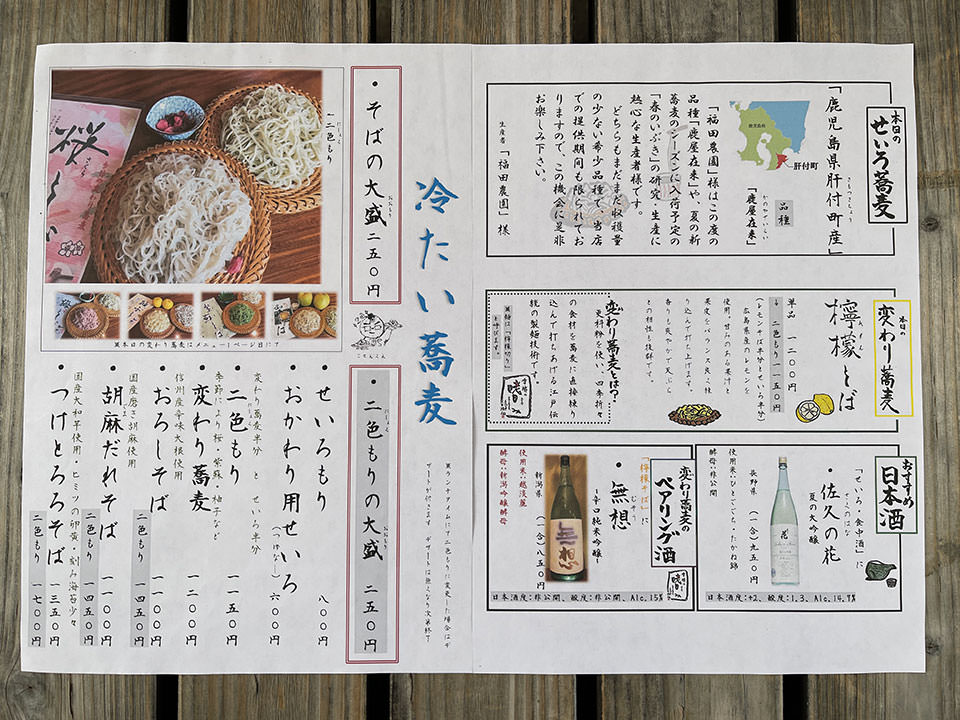 本日の
せいろ蕎麦
「鹿児島県肝付町産」
きもつきちょう
鹿児島県
肝付町
品種
かのやざいらい
「鹿屋在来」
「福田農園」様はこの度の
品種「鹿屋在来」や、夏の新
蕎麦のシーズンに入荷予定の
「春のいぶき」の研究・生産に
熱心な生産者様です。
どちらもまだまだ収穫量
の少ない希少品種で、当店
での提供期間も限られてお
りますので、この機会に是非
お楽しみ下さい。
生産者「福田農園」様
本日の
変わり蕎麦
檸檬そば
単品 一二〇〇円
(レモンそば半分とせいろ半分)
二色もり 一一五〇円
広島県産のレモンを
使用。甘みのある果汁と
果皮をバランス良く練
り込んで打ち上げます。
香りも爽やかで天ぷら
との相性も抜群です。
変わり蕎麦とは?
更科粉を使い、四季折々
の食材を蕎麦に直接練り
込んで打ちあげる江戸伝
統の製麺技術です。
※麺は「檸檬切り」
と呼びます。
おすすめ
日本酒
「せいろ・食中酒」
さくのはな
・佐久の花
夏の大吟醸
長野県 (一合)九五〇円
使用米:ひとごこち・たかね錦
酵母:非公開
日本酒度:+2、酸度:1.3、Alc.14.9%
変わり蕎麦の
ペアリング酒
「檸檬そば」に
むそう
・無想
~辛口純米吟醸~
無想
新潟県 (一合)八五〇円
使用米:越淡麗
酵母:新潟吟醸酵母
日本酒度:非公開、酸度:非公開、Alc.15%
冷たい蕎麦
・そばの大盛 二五〇円
おおもり
二色もり
にしょく
桜
※本日の変わり蕎麦はメニュー1ページ目にて
・二色もりの大盛 二五〇円
※ランチタイムに二色もりに変更した場合はデ
ザートが付きます デザートは無くなり次第終了
・せいろもり 八〇〇円
・おかわり用せいろ
(つゆなし) 六〇〇円
変わり蕎麦半分 と せいろ半分
・二色もり 一一五〇円
季節により桜・紫蘇・柚子など
・変わり蕎麦 一二〇〇円
信州産辛味大根使用
・おろしそば 一一五〇円
二色もり 一四五〇円
国産磨きごま使用
・胡麻だれそば 一一〇〇円
二色もり 一四五〇円
国産大和芋使用・ヒミツの卵黄・刻み海苔少々
・つけとろろそば 一三五〇円
二色もり 一七〇〇円